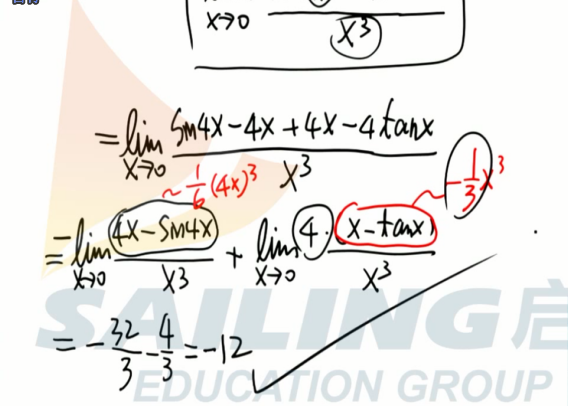 x→0 x³
= lim x→0 (sin4x-4x+4x-4tanx)/x³
~ 1/6 (4x)³
-1/3 x³
= -lim x→0 (4x-sin4x)/x³ + lim x→0 4·(x-tanx)/x³
= -32/3 - 4/3 = -12
SAILING 启
EDUCATION GROUP